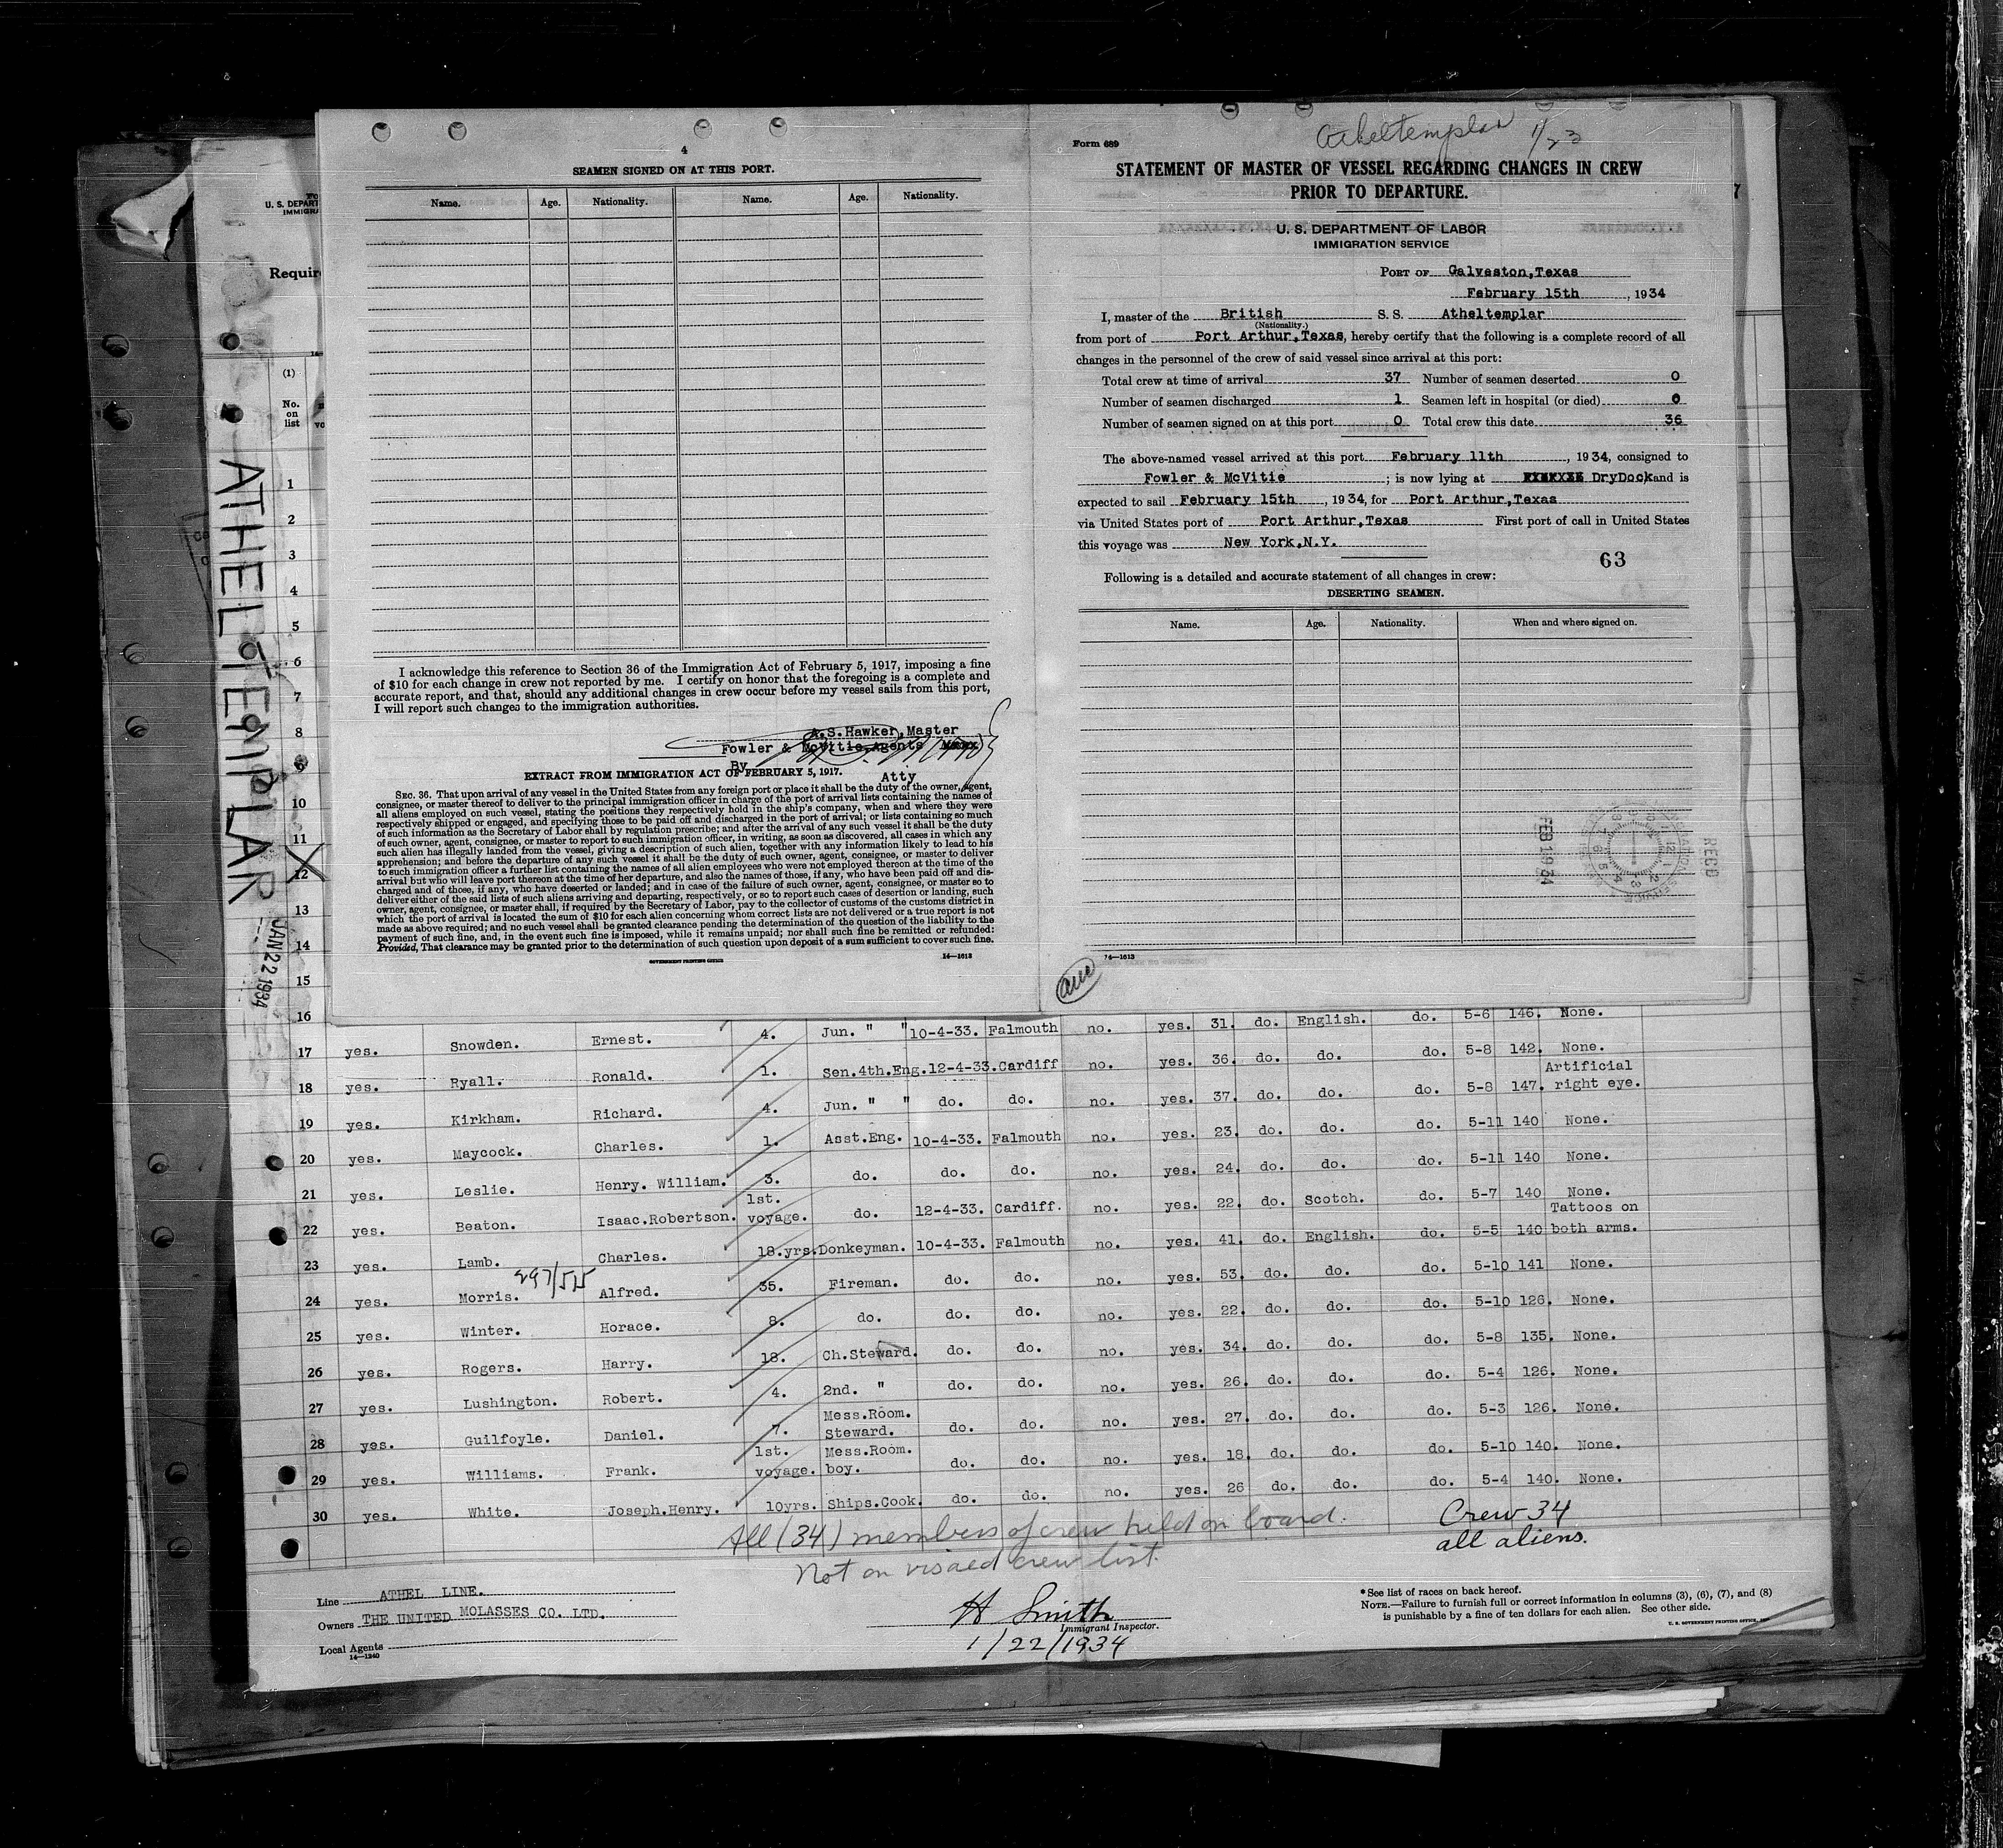 4
SEAMEN SIGNED ON AT THIS PORT.
Name. Age. Nationality. Name. Age. Nationality.
I acknowledge this reference to Section 36 of the Immigration Act of February 5, 1917, imposing a fine
of $10 for each change in crew not reported by me. I certify on honor that the foregoing is a complete and
accurate report, and that, should any additional changes in crew occur before my vessel sails from this port,
I will report such changes to the immigration authorities.
A.S.Hawker,Master
Fowler & McVitie,Agents
By
Atty
EXTRACT FROM IMMIGRATION ACT OF FEBRUARY 5, 1917.
SEC. 36. That upon arrival of any vessel in the United States from any foreign port or place it shall be the duty of the owner, agent,
consignee, or master thereof to deliver to the principal immigration officer in charge of the port of arrival lists containing the names of
all aliens employed on such vessel, stating the positions they respectively hold in the ship's company, when and where they were
respectively shipped or engaged, and specifying those to be paid off and discharged in the port of arrival; or lists containing so much
of such information as the Secretary of Labor shall by regulation prescribe; and after the arrival of any such vessel it shall be the duty
of such owner, agent, consignee, or master to report to such immigration officer, in writing, as soon as discovered, all cases in which any
such alien has illegally landed from the vessel, giving a description of such alien, together with any information likely to lead to his
apprehension; and before the departure of any such vessel it shall be the duty of such owner, agent, consignee, or master to deliver
to such immigration officer a further list containing the names of all alien employees who were not employed thereon at the time of the
arrival but who will leave port thereon at the time of her departure, and also the names of those, if any, who have been paid off and dis-
charged and of those, if any, who have deserted or landed; and in case of the failure of such owner, agent, consignee, or master so to
deliver either of the said lists of such aliens arriving and departing, respectively, or so to report such cases of desertion or landing, such
owner, agent, consignee, or master shall, if required by the Secretary of Labor, pay to the collector of customs of the customs district in
which the port of arrival is located the sum of $10 for each alien concerning whom correct lists are not delivered or a true report is not
made as above required; and no such vessel shall be granted clearance pending the determination of the question of the liability to the
payment of such fine, and, in the event such fine is imposed, while it remains unpaid; nor shall such fine be remitted or refunded:
Provided, That clearance may be granted prior to the determination of such question upon deposit of a sum sufficient to cover such fine.
GOVERNMENT PRINTING OFFICE 14—1613
Atheltemplar 1/23
Form 689
STATEMENT OF MASTER OF VESSEL REGARDING CHANGES IN CREW
PRIOR TO DEPARTURE.
U. S. DEPARTMENT OF LABOR
IMMIGRATION SERVICE
PORT OF Galveston,Texas
February 15th, 1934
I, master of the British S. S. Atheltemplar
(Nationality.)
from port of Port Arthur,Texas, hereby certify that the following is a complete record of all
changes in the personnel of the crew of said vessel since arrival at this port:
Total crew at time of arrival 37 Number of seamen deserted 0
Number of seamen discharged 1 Seamen left in hospital (or died) 0
Number of seamen signed on at this port 0 Total crew this date 36
The above-named vessel arrived at this port February 11th, 1934, consigned to
Fowler & McVitie; is now lying at DryDock and is
expected to sail February 15th, 1934, for Port Arthur,Texas
via United States port of Port Arthur,Texas First port of call in United States
this voyage was New York,N.Y.
63
Following is a detailed and accurate statement of all changes in crew:
DESERTING SEAMEN.
Name. Age. Nationality. When and where signed on.
REC'D
FEB 19 34
14—1613
U. S. DEPART
IMMIGRA
Requir
(1)
No.
on
list
ATHELTEMPLAR
JAN 22 1934
1
2
3
4
5
6
7
8
9
10
11
12
13
14
15
16 Jun. " " 10-4-33. Falmouth no. yes. 31. do. English. do. 5-6 146. None.
17 yes. Snowden. Ernest. 4. Sen.4th.Eng. 12-4-33. Cardiff no. yes. 36. do. do. do. 5-8 142. None.
18 yes. Ryall. Ronald. 1. Jun. " " do. do. no. yes. 37. do. do. do. 5-8 147. Artificial right eye.
19 yes. Kirkham. Richard. 4. Asst.Eng. 10-4-33. Falmouth no. yes. 23. do. do. do. 5-11 140 None.
20 yes. Maycock. Charles. 1. do. do. do. no. yes. 24. do. do. do. 5-11 140 None.
21 yes. Leslie. Henry. William. 3. do. 12-4-33. Cardiff. no. yes. 22. do. Scotch. do. 5-7 140 None.
22 yes. Beaton. Isaac.Robertson. 1st. voyage. Donkeyman. 10-4-33. Falmouth no. yes. 41. do. English. do. 5-5 140 Tattoos on both arms.
23 yes. Lamb. Charles. 18.yrs. Fireman. do. do. no. yes. 53. do. do. do. 5-10 141 None.
24 yes. Morris. 297/515 Alfred. 35. do. do. do. no. yes. 22. do. do. do. 5-10 126. None.
25 yes. Winter. Horace. 8. Ch.Steward. do. do. no. yes. 34. do. do. do. 5-8 135. None.
26 yes. Rogers. Harry. 18. 2nd. " do. do. no. yes. 26. do. do. do. 5-4 126. None.
27 yes. Lushington. Robert. 4. Mess.Room. Steward. do. do. no. yes. 27. do. do. do. 5-3 126. None.
28 yes. Guilfoyle. Daniel. 7. Mess.Room. boy. do. do. no. yes. 18. do. do. do. 5-10 140. None.
29 yes. Williams. Frank. 1st. voyage. Ships.Cook. do. do. no. yes. 26 do. do. do. 5-4 140. None.
30 yes. White. Joseph.Henry. 10yrs.
All (34) members of crew held on board.
Not on visaed crew list.
Crew 34
all aliens.
Line ATHEL LINE.
Owners THE UNITED MOLASSES CO. LTD.
Local Agents
14—1240
H Smith
Immigrant Inspector.
1/22/1934
*See list of races on back hereof.
NOTE.—Failure to furnish full or correct information in columns (3), (6), (7), and (8)
is punishable by a fine of ten dollars for each alien. See other side.
U. S. GOVERNMENT PRINTING OFFICE